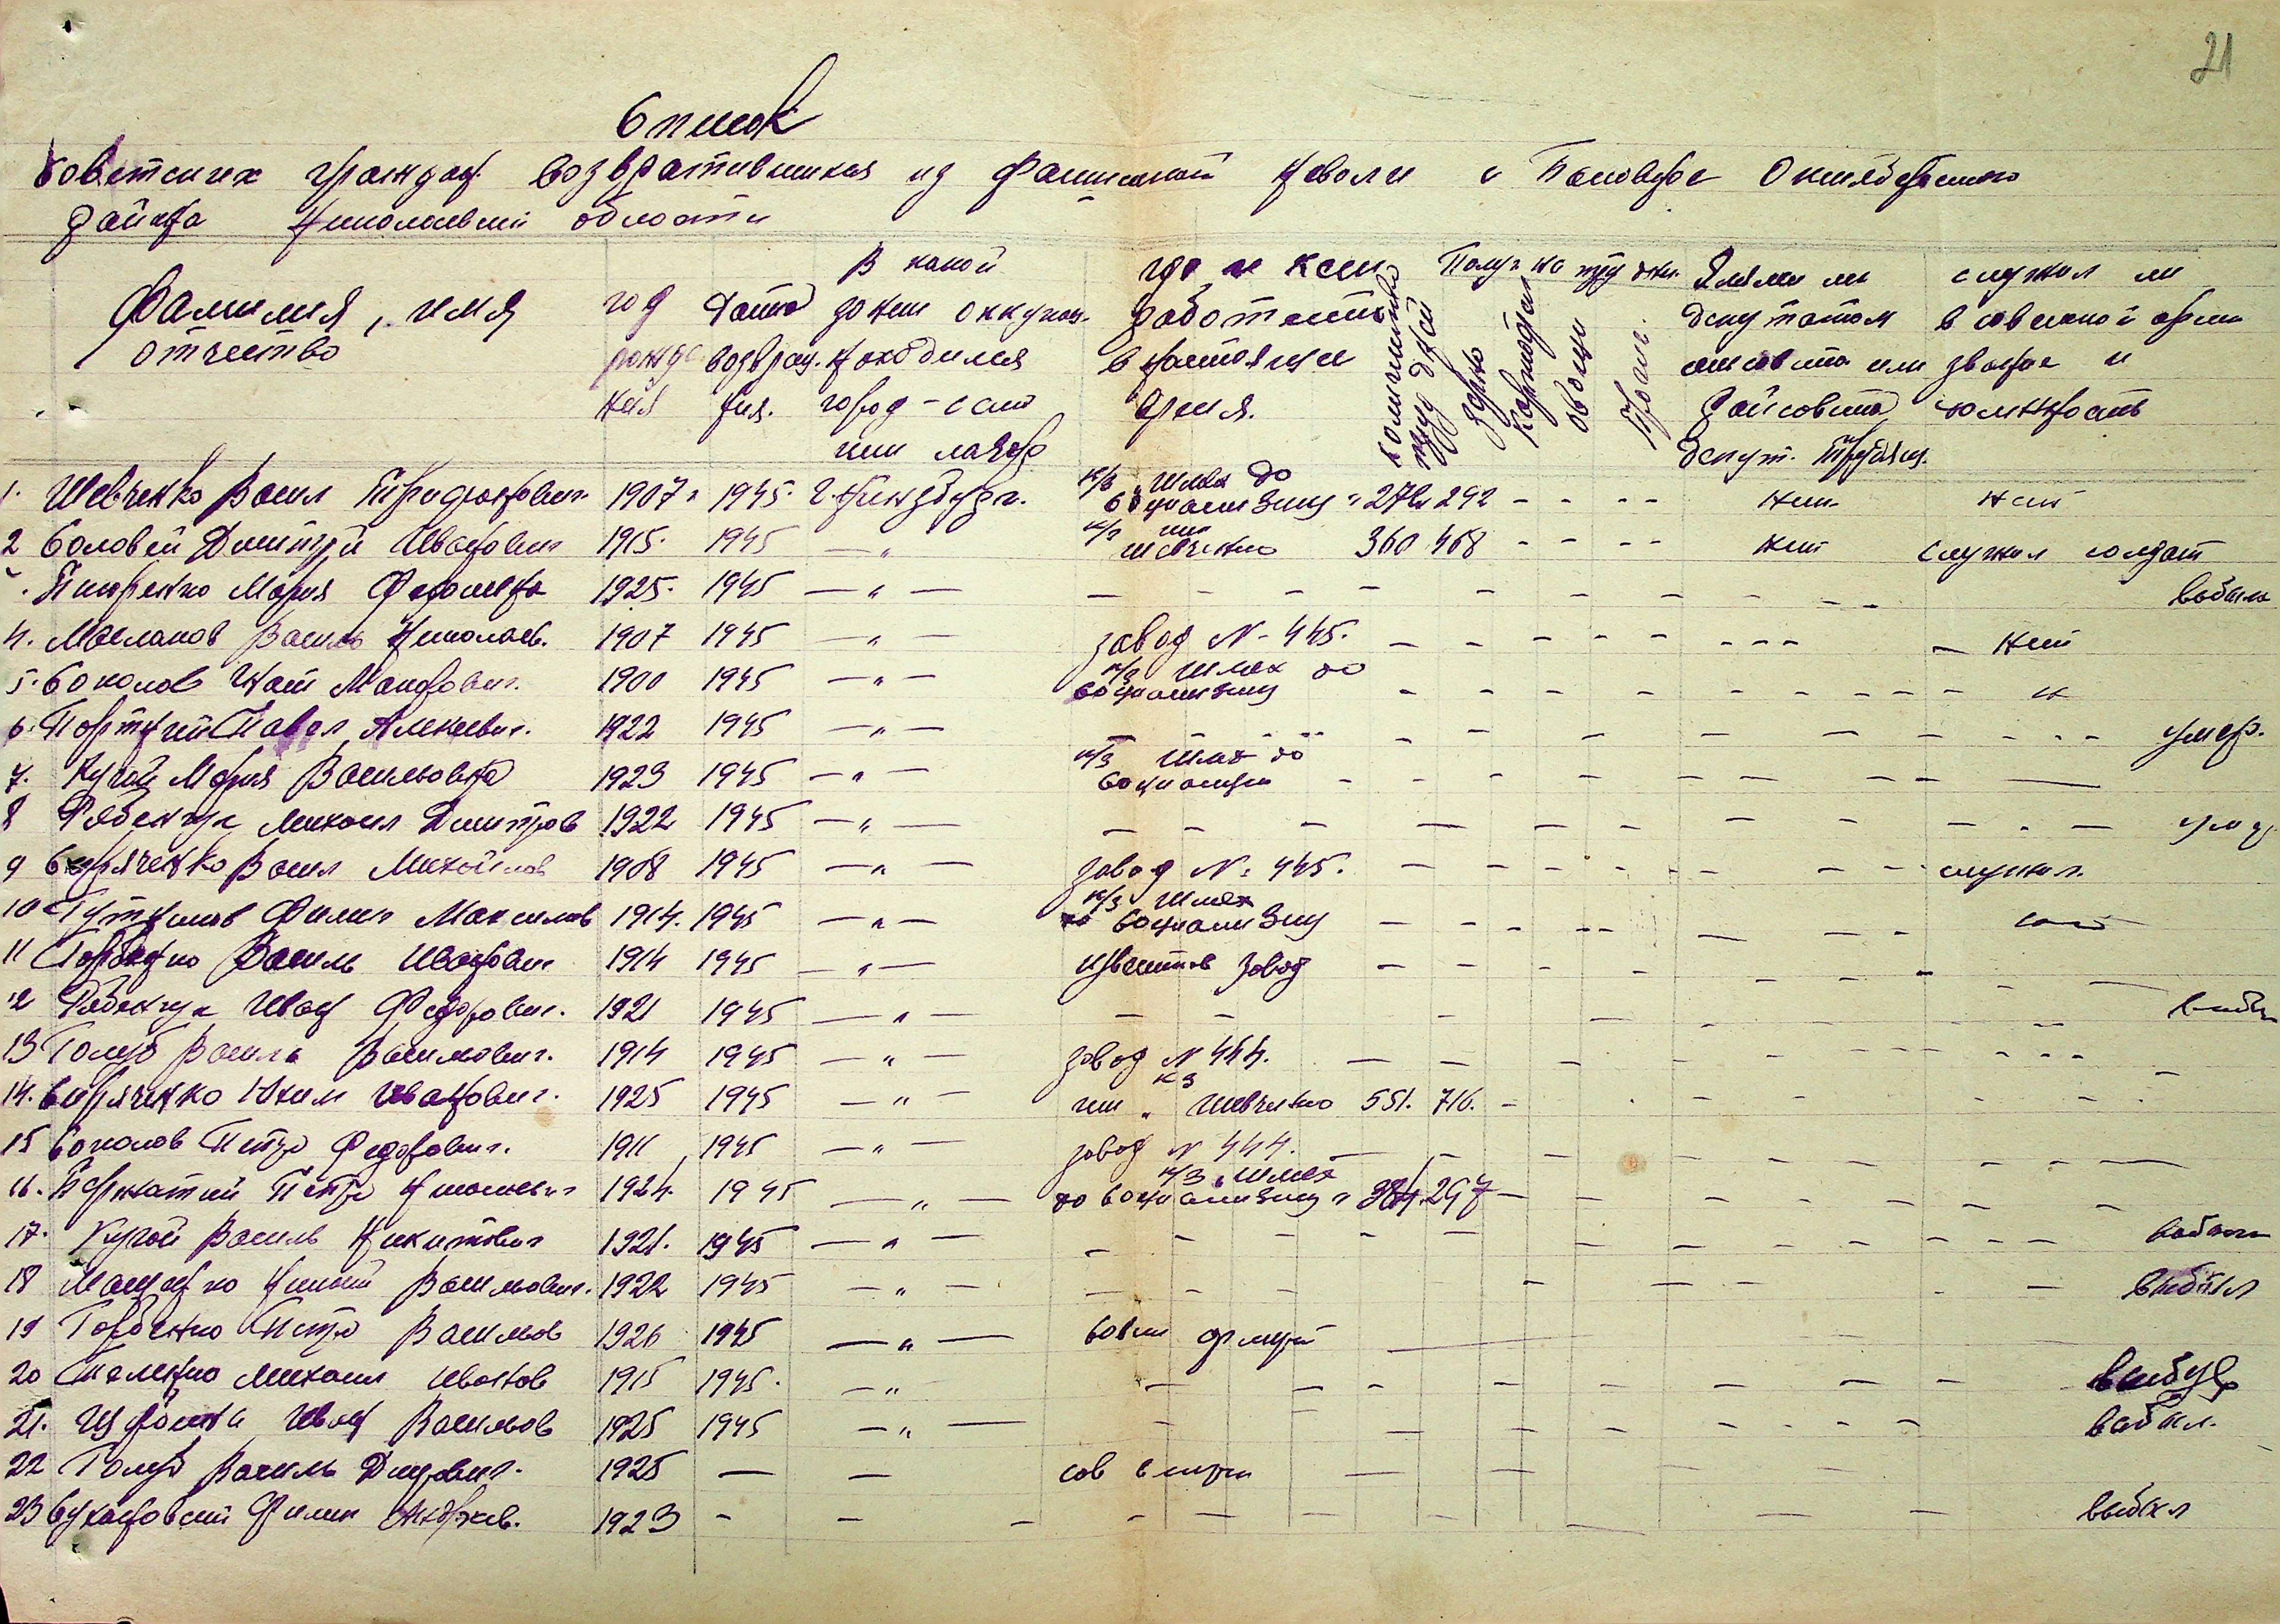 21
Список
Советских граждан возвратившихся из фашистской неволи с Баловное Октябрьского
района Николаевской области
Фамилия, имя отчество
год рождения
дата возвращ. ния.
В какой зоне оккупац. находился город - село или лагер
где и кем работает в настоящее время.
количество труд дней
Получ на труд день
зерно
Картофель
овощи
грош.
Являлся ли депутатом сельсовета или Райсовета депут. трудящ.
служил ли в советской арми звание и должность
1. Шевченко Васил Трифонович 1907 г 1945. г. Гинзбург. к/з "Шлях до социализму" 276 292 - - - - нет нет
2 Соловей Дмитрий Иванович 1915. 1945 — " к/з им Шевченко 360 468 - - - - нет служил солдат
Мария 1925. 1945 — " — выбыла
4. Маслаков Василь Николаев. 1907 1945 — " — завод N - 445. — нет
5. Соколов Макарович. 1900 1945 — " — к/з Шлях до социализму - - - н
6. Портной Павел Алексеевич. 1922 1945 — " — умер.
7. Кугой Мария Васильовна 1923 1945 — " — к/з Шлях до
8 Рябенчук Михаил Дмитров 1922 1945 — " — умер
9 Сиряченко Васил Михайлов 1908 1945 — " — завод N: 445. - - - служил.
10 Филип Максимов 1914. 1945 — " — к/з Шлях до социализму
11 Горбенко Василь Иванович 1914 1945 — " — завод
12 Рябенчук Иван Федорович. 1921 1945 — " — выбыл
13 Голуб Василь Васильович. 1914 1945 — " — завод N 444.
14. Сиряченко Яким Иванович. 1925 1945 — " — кз им " Шевченко 551. 716. -
15 Соколов Петро Федорович. 1911 1945 — " — завод N 444.
16. Петро Николаевич 1924. 1945 — " — к/з "Шлях до социализму" 384. 297 —
17. Кугой Василь Никитович 1921. 1945 — " — выбыл
18 Васильович. 1922 1945 — " — выбыл
19 Горбенко Петро Васильов 1926 1945 — " —
20 Михаил Иванов 1915 1945. — " выбув
21. Иван Васильов 1925 1945 — " — выбыл.
22 Голуб Василь 1925 — —
23 Сухановский Филип Андреев. 1923 - - - выбыл